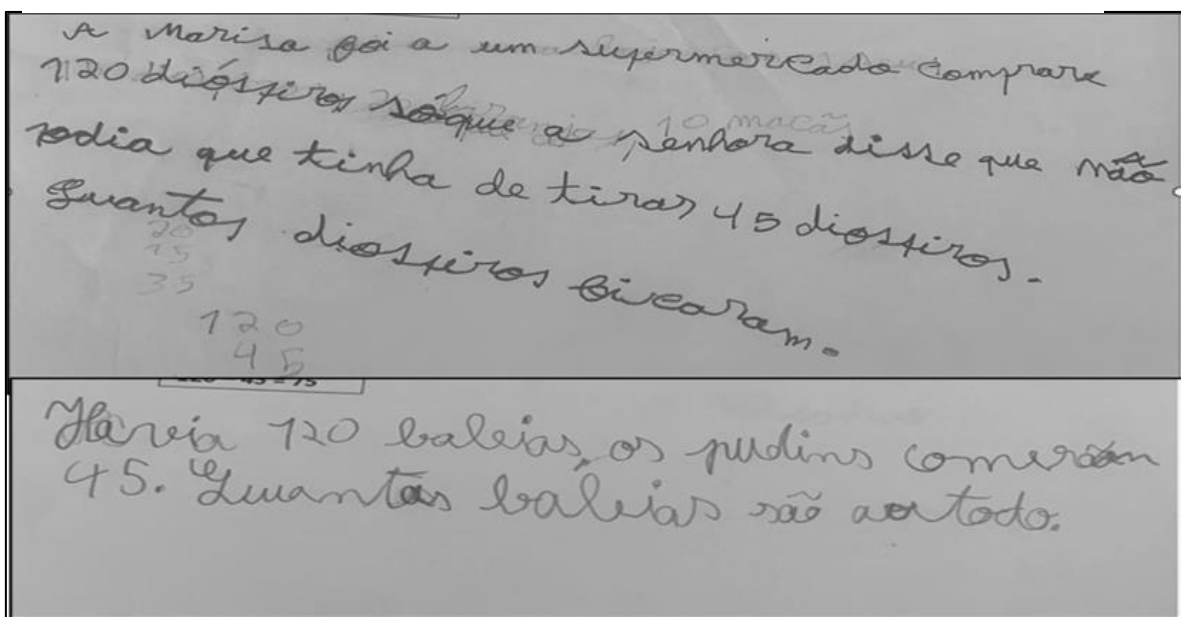 A Marisa foi a um supermercado comprare
120 dióspiros só que a senhora disse que não
podia que tinha de tirar 45 diospiros.
Quantos diospiros ficaram.
20
15
35
120
45
120 - 45 = 75
Havia 120 baleias, os pudins comeram
45. Quantas baleias são ao todo.